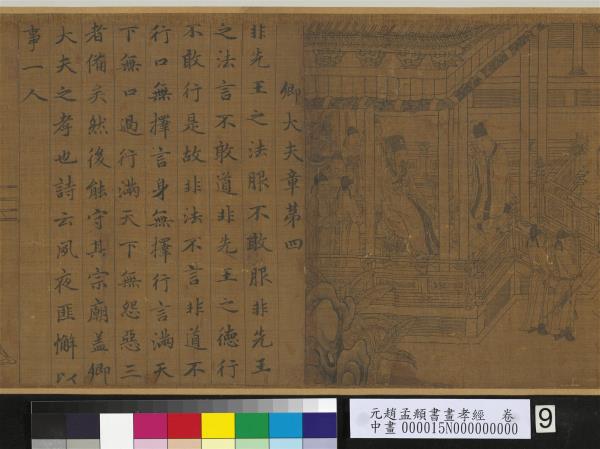 卿大夫章第四
非先王之法服不敢服非先王
之法言不敢道非先王之德行
不敢行是故非法不言非道不
行口無擇言身無擇行言滿天
下無口過行滿天下無怨惡三
者備矣然後能守其宗廟蓋卿
大夫之孝也詩云夙夜匪懈以
事一人
元趙孟頫書畫孝經 卷
中畫 000015N000000000
9